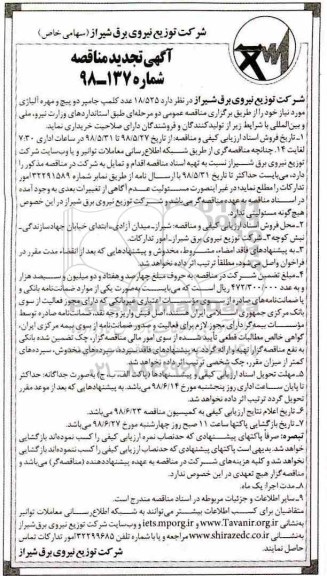 شرکت توزیع نیروی برق شیراز (سهامی خاص)
آگهی تجدید مناقصه
شماره ۱۳۷-۹۸
شرکت توزیع نیروی برق شیراز در نظر دارد ۱۸/۵۲۵ عدد کلمپ جامپر دو پیچ و مهره آلیاژی
مورد نیاز خود را از طریق برگزاری مناقصه عمومی دو مرحله‌ای طبق استانداردهای وزارت نیرو، ملی
و بین‌المللی با شرایط زیر از تولیدکنندگان و فروشندگان دارای صلاحیت خریداری نماید.
۱ـ تاریخ فروش اسناد ارزیابی کیفی و مناقصه: از تاریخ ۹۸/۵/۲۷ تا ۹۸/۵/۳۱ در ساعات اداری ۷/۳۰
لغایت ۱۴، چنانچه مناقصه‌گری از طریق شبکه اطلاع‌رسانی معاملات توانیر و یا وب‌سایت شرکت
توزیع نیروی برق شیراز نسبت به تهیه اسناد مناقصه اقدام و تمایل به شرکت در مناقصه مذکور را
دارد، می‌بایست حداکثر تا تاریخ ۹۸/۵/۳۱ با ارسال نامه از طریق نمابر شماره ۳۲۲۹۱۵۸۹ امور
تدارکات را مطلع نماید؛ در غیر اینصورت مسئولیت عدم آگاهی از تغییرات بعدی به وجود آمده
در اسناد مناقصه به عهده مناقصه‌گر می‌باشد و شرکت توزیع نیروی برق شیراز در این خصوص
هیچ‌گونه مسئولیتی ندارد.
۲ـ محل فروش اسناد ارزیابی کیفی و مناقصه: شیراز ـ میدان آزادی ـ ابتدای خیابان جهادسازندگی ـ
نبش کوچه ۳ ـ شرکت توزیع نیروی برق شیراز ـ امور تدارکات.
۳ـ به پیشنهادهای فاقد امضاء، مشروط، مخدوش و پیشنهادهایی که بعد از انقضاء مدت مقرر در
فراخوان واصل می‌شود، مطلقاً ترتیب اثر داده نخواهد شد.
۴ـ مبلغ تضمین شرکت در مناقصه: به حروف مبلغ چهارصد و هفتاد و دو میلیون و سیصد هزار
و به عدد ۴۷۲/۳۰۰/۰۰۰ ریال است که می‌بایست به‌صورت یکی از موارد ضمانت‌نامه بانکی و
یا ضمانت‌نامه‌های صادره از سوی مؤسسات اعتباری غیربانکی که دارای مجوز فعالیت از سوی
بانک مرکزی جمهوری اسلامی ایران هستند، اصل فیش واریز وجه نقد، ضمانت‌نامه صادره توسط
مؤسسات بیمه‌گر دارای مجوز لازم برای فعالیت و صدور ضمانت‌نامه از سوی بیمه مرکزی ایران،
گواهی خالص مطالبات قطعی تأیید شده از سوی امور مالی مناقصه‌گزار، چک تضمین شده بانکی
به نفع مناقصه‌گزار تهیه و ارائه گردد. به پیشنهادهای فاقد سپرده، سپرده‌های مخدوش، سپرده‌های
کمتر از میزان مقرر، چک شخصی ترتیب اثر داده نخواهد شد.
۵ـ مهلت تحویل اسناد ارزیابی کیفی و پیشنهادها (پاکات الف ـ ب ـ ج) به‌صورت جداگانه: حداکثر
تا پایان ساعت اداری روز پنجشنبه مورخ ۹۸/۶/۱۴ می‌باشد. به پیشنهادهایی که بعد از موعد مقرر
تحویل گردد ترتیب اثر داده نخواهد شد.
۶ـ تاریخ اعلام نتایج ارزیابی کیفی به کمیسیون مناقصه ۹۸/۶/۲۳ می‌باشد.
۷ـ تاریخ بازگشایی پاکتها ساعت ۱۱ صبح روز چهارشنبه مورخ ۹۸/۶/۲۷ می‌باشد.
تبصره: صرفاً پاکتهای پیشنهادی که حدنصاب نمره ارزیابی کیفی را کسب نموده‌اند بازگشایی
خواهد شد. بدیهی است پاکتهای پیشنهادی که حدنصاب ارزیابی کیفی را کسب ننموده‌اند بازگشایی
نخواهد شد و کلیه هزینه‌های شرکت در مناقصه به عهده پیشنهاددهنده (مناقصه‌گر) می‌باشد و
مناقصه‌گزار هیچ تعهدی در این خصوص ندارد.
۸ـ مدت اجرا: یک ماه.
۹ـ سایر اطلاعات و جزئیات مربوطه در اسناد مناقصه مندرج است.
متقاضیان برای کسب اطلاعات بیشتر می‌توانند به شبکه اطلاع‌رسانی معاملات توانیر
به‌نشانی www.Tavanir.org.ir و iets.mporg.ir و وب‌سایت شرکت توزیع نیروی برق شیراز
به‌نشانی www.shirazedc.co.ir مراجعه و یا با شماره تلفن ۳۲۲۹۹۶۸۵ امور تدارکات تماس
حاصل نمایند.
شرکت توزیع نیروی برق شیراز